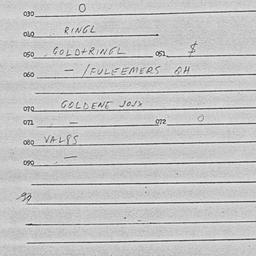 030 O
040 RINGL
050 GOLD+RINGL 051 $
060 — /FULEEMERS QH
070 GOLDENE JOJS
071 — 072 O
080 VALPS
090 —